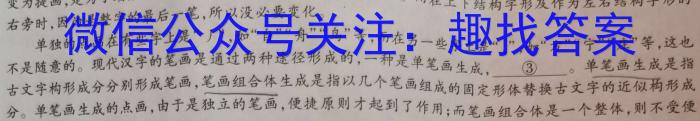 变为提画，
在上下结构字形及作为左右结构字形的
右旁时，因 是整字的最后一笔，所以没必要变化。
单独的 在 字上是 如 ，而在另一些 等，这也
微信公众号关注：趣找答案
不是随意的。现代汉字的笔画是通过两种途径形成的，一种是单笔画生成，③。单笔画生成是指
古文字构形成分分别形成笔画，笔画组合体生成是指以几个笔画组成的固定形体替换古文字的近似构形成
分。单笔画生成的点画，由于是独立的笔画，便捷原则才起到了作用；而笔画组合体是一个整体，则不受便